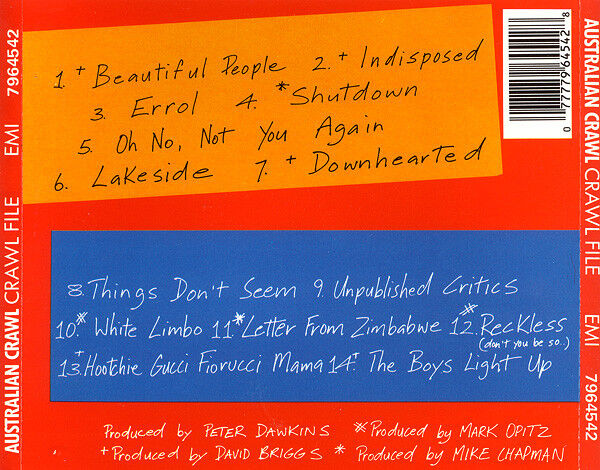 AUSTRALIAN CRAWL CRAWL FILE EMI 7964542
1. + Beautiful People 2. + Indisposed
3. Errol 4. *Shutdown
5. Oh No, Not You Again
6. Lakeside 7. + Downhearted
0 77779 64542 8
8. Things Don't Seem 9. Unpublished Critics
10.* White Limbo 11* Letter From Zimbabwe 12.* Reckless
(don't you be so..)
13.+ Hootchie Gucci Fiorucci Mama 14.+ The Boys Light Up
Produced by PETER DAWKINS * Produced by MARK OPITZ
+ Produced by DAVID BRIGGS * Produced by MIKE CHAPMAN
AUSTRALIAN CRAWL CRAWL FILE EMI 7964542